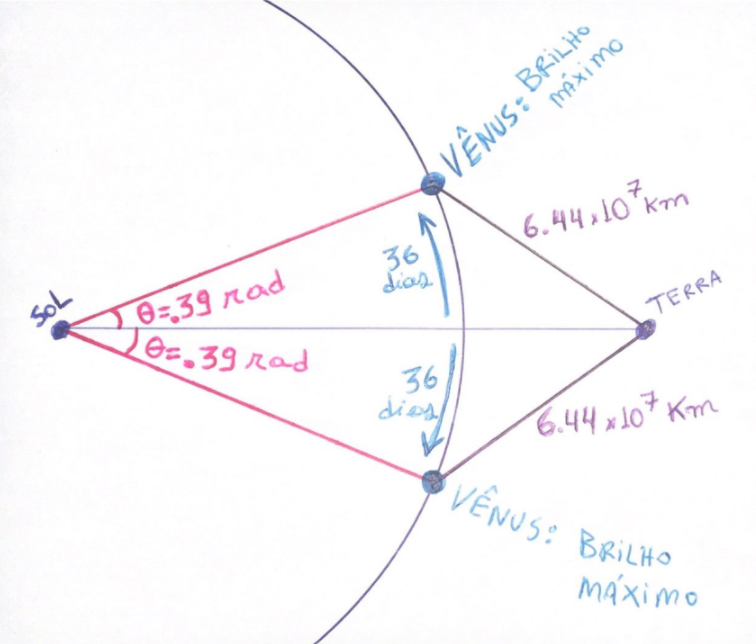 VÊNUS: BRILHO
MÁXIMO
6.44x10⁷ Km
36
dias
SOL
θ=.39 rad
TERRA
θ=.39 rad
36
dias
6.44x10⁷ Km
VÊNUS: BRILHO
MÁXIMO